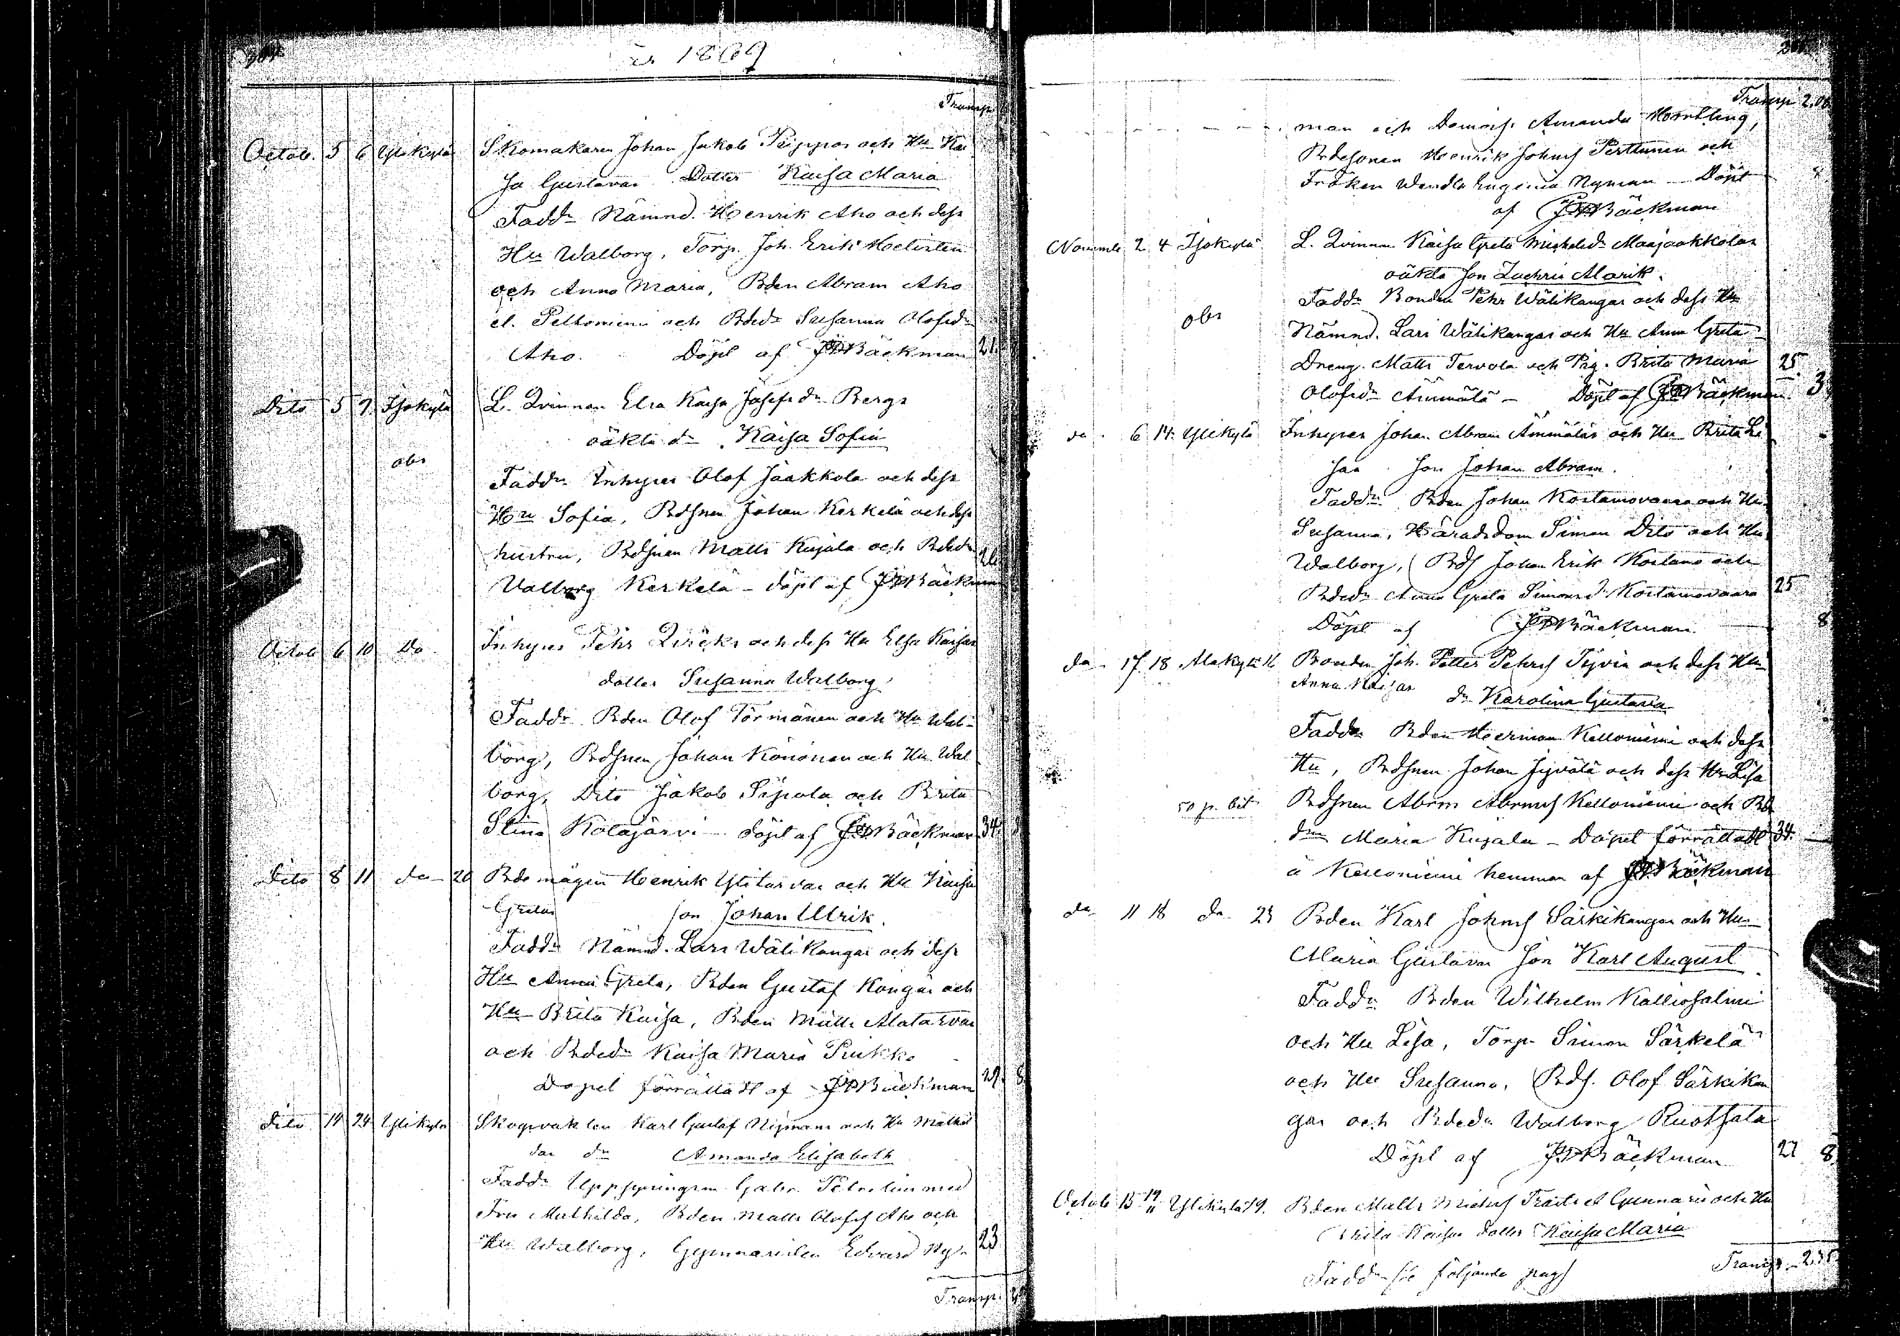 år 1869
Transp.
Octob. 5 6 Ylikylä Skomakaren Johan Jakob Piippos och Hu Kai
sa Gustavas Dotter Kaisa Maria
Fadd. Nämnd. Henrik Aho och dess
Hu Walborg, Torp. Joh. Erik
och Anna Maria, Bden Abram Aho
el. Peltoniemi och Bded. Susanna Olofsd.
Aho. Döpt af Bäckman 21.
Dito 5 7 Isokylä L. Qvinnan Elsa Kaisa Josefsd. Bergs
oäkta dr Kaisa Sofia
obs
Fadd. Inhyses Olof Jaakkola och dess
Hu Sofia, Bdsnen Johan Kerkelä och dess
hustru, Bdsnen Matts Kujala och Bded.
Valborg Kerkelä - döpt af Bäckman
Octob 6 10 Do Inhyses Pehr Qvicks och dess Hu Elsa Kaisas
dotter Susanna Walborg
Fadd. Bden Olof Törmänen och Hu Wal-
borg, Bdsnen Johan Könönen och Hu Wal
borg, Dito Jakob Siipola och Brita
Stina Kotajärvi - döpt af Bäckman 34.
Dito 8 11 do 20 Bdemågen Henrik Ylitarvas och Hu Kaisa
Gretas son Johan Ulrik.
Fadd. Nämnd. Lars Wälikangas och dess
Hu Anna Greta, Bden Gustaf Kangas och
Hu Brita Kaisa, Bden Matts Alatarvas
och Bded. Kaisa Maria Pukko
Döpel förrättadt af Bäckman 29. 8
Dito 14 24 Ylikylä Skogsvakten Karl Gustaf Nymans och Hu Mathil
das dr Amanda Elisabeth
Fadd. Uppsyningsm. Gabr. med
Fru Mathilda, Bden Matts Olofss Aho och
Hu Walborg, Gymnasisten Edvard Ny- 23
Transp.
Transp. 2,08
man och Demois. Amanda Hornbling,
Bdesonen Henrik Johnss Perttunen och
Fröken Wendla Eugenia Nyman - Döpt 8
af Bäckman
Novemb. 2 4 Isokylä L. Qvinnan Kaisa Greta Michelsd. Maajaakkolas
oäkta son Zachris Alarik.
Fadd. Bonden Pehr Wälikangas och dess Hu
obs
Nämnd. Lars Wälikangas och Hu Anna Greta
Dreng. Matts Tervola och Pig. Brita Maria 25
Olofsd. Ämmälä - Döpt af Bäckman 3
do 6 14 Ylikylä Inhyses Johan Abram Ämmäläs och Hu Brita Li
sas son Johan Abram.
Fadd. Bden Johan Kostamovaara och Hu
Susanna, Häradsdom Simon Dito och Hu
Walborg, Bds Johan Erik Kostamo och
Bded. Anna Greta Simonsd. Kostamovaara 25
Döpt af Bäckman 8
do 17 18 Alakylä 16 Bonden Joh. Petter Pehrss Typiä och dess Hu
Anna Kaisas dr Karolina Gustava
Fadd. Bden Herman Kelloniemi och dess
Hu, Bdsnen Johan Jyvälä och dess Hu Lisa
50 p. bet Bdsnen Abrm Abrmss Kelloniemi och Bd
dr Maria Kujala - Döpel förrättadt 34.
å Kelloniemi hemman af Bäckman
do 11 18 do 23 Bden Karl Johnss Särkikangas och Hu
Maria Gustavas son Karl August
Fadd. Bden Wilhelm Kalliosalmi
och Hu Lisa, Torp. Simon Särkelä
och Hu Susanna, Bds. Olof Särkikan
gas och Bded. Walborg Ruotsala
Döpt af Bäckman 27 8
Octob 15 19/11 Ylikylä 19. Bden Matts Michss el Gunnari och Hu
Brita Kaisas dotter Kaisa Maria
Fadd. se följande pag
Transp. 2,35